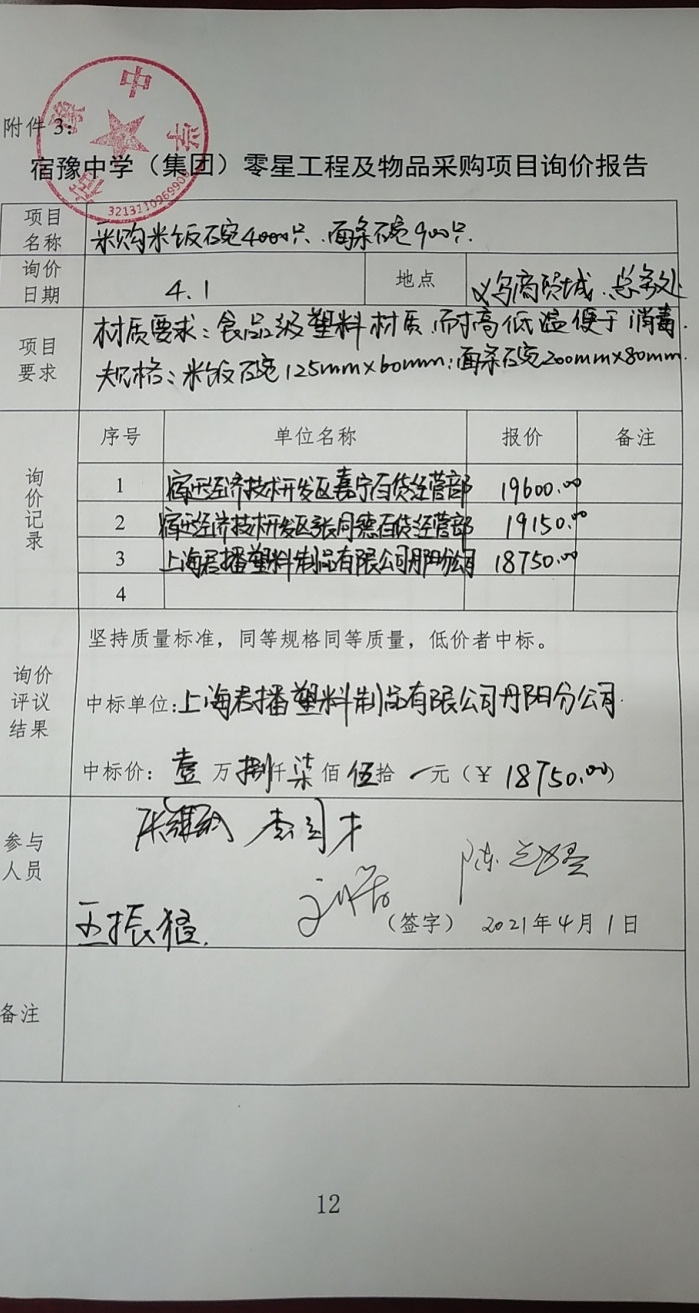 宿豫中学
3213110969908
附件3：
宿豫中学（集团）零星工程及物品采购项目询价报告
项目名称 采购米饭碗4000只.面条碗900只.
询价日期 4.1 地点 义乌商贸城.总务处
项目要求 材质要求：食品级塑料材质.耐高低温便于消毒.
规格：米饭碗125mm×60mm；面条碗200mm×80mm.
询价记录 序号 单位名称 报价 备注
1 宿迁经济技术开发区嘉宁百货经营部 19600.00
2 宿迁经济技术开发区张同德百货经营部 19150.00
3 上海君播塑料制品有限公司丹阳分公司 18750.00
4
坚持质量标准，同等规格同等质量，低价者中标。
询价评议结果 中标单位：上海君播塑料制品有限公司丹阳分公司.
中标价：壹万捌仟柒佰伍拾 元（￥18750.00）
参与人员
（签字） 2021年4月1日
备注
12